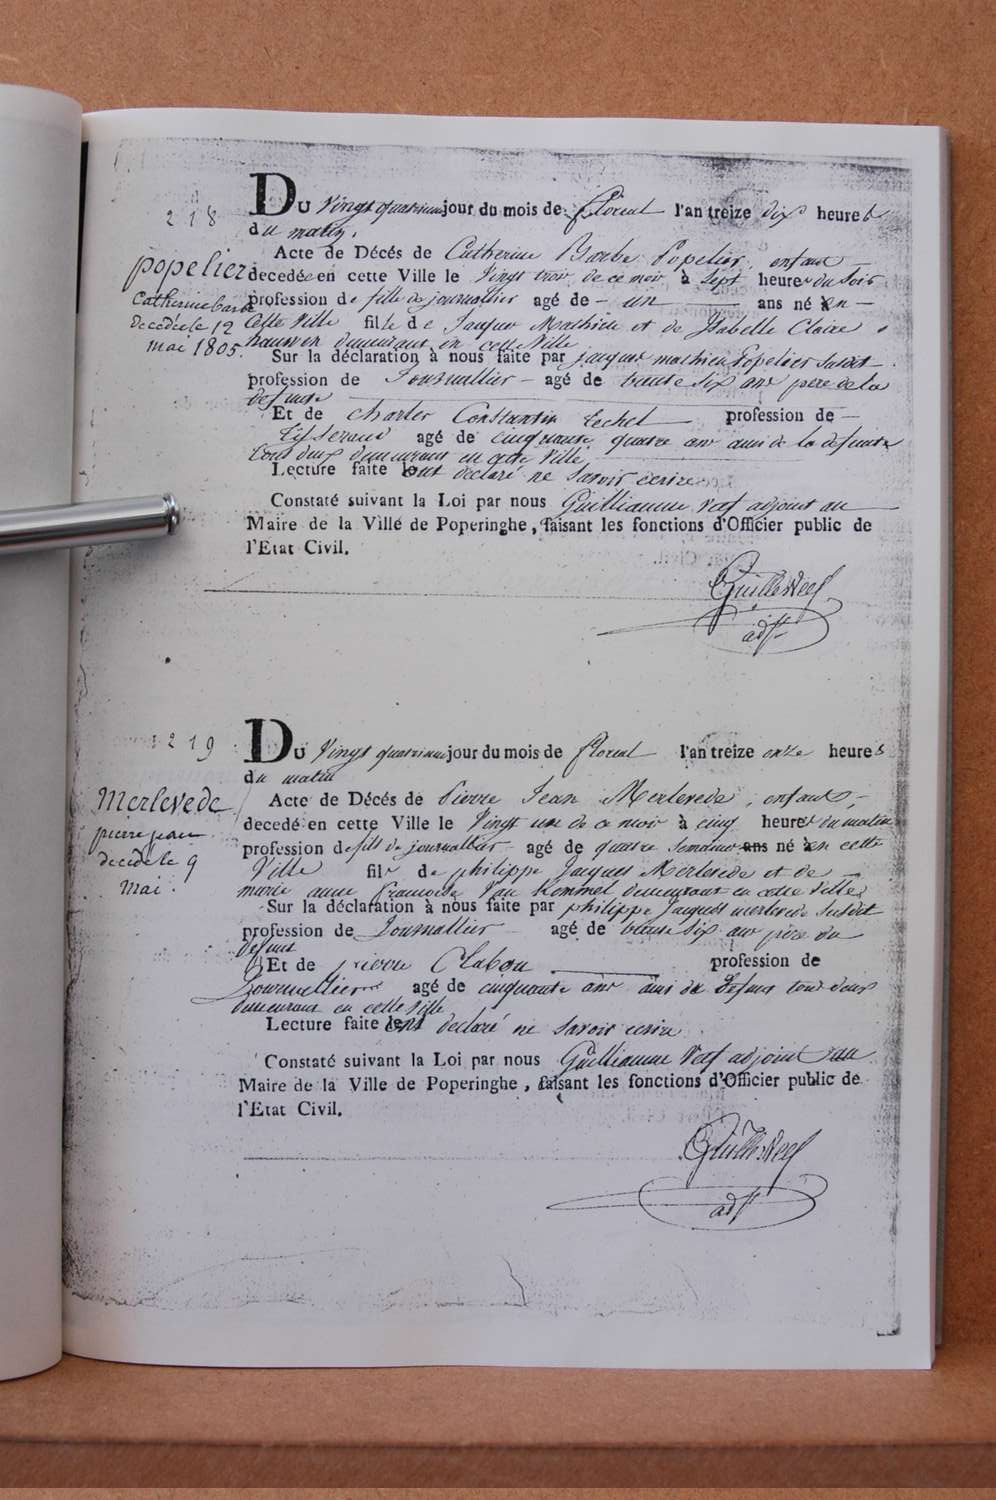 218
Du Vingt quatrieme jour du mois de floreal l'an treize dix heures
du matin,
Acte de Décés de Catherine Barbe Popelier, enfant
popelier
decedée en cette Ville le Vingt trois de ce mois à sept heures du soir
Catherine barbe
profession de fille de journallier agé de - un ans né en
decedée le 12
cette Ville fille de Jacques Mathieu et de Isabelle Claire
mai 1805.
demeurant en cette Ville
Sur la déclaration à nous faite par jacques mathieu Popelier susdit
profession de Journallier - agé de trente six ans pere de la
defunte
Et de charles Constantin profession de
Tisserand agé de cinquante quatre ans ami de la defunte
tous deux demeurant en cette Ville
Lecture faite ont declaré ne savoir ecrire
Constaté suivant la Loi par nous Guilliaume adjoint au
Maire de la Ville de Poperinghe, faisant les fonctions d'Officier public de
l'Etat Civil.
adjt
219
Du Vingt quatrieme jour du mois de floreal l'an treize onze heures
du matin
Acte de Décés de Pierre Jean Merlevede, enfant,
Merlevede
decedé en cette Ville le Vingt un de ce mois à cinq heures du matin
pierre jean
profession de fils de journallier agé de quatre semaines ans né en cette
decede le 9
Ville fils de philippe Jacques Merlevede et de
mai.
marie anne francoise Van Kemmel demeurant en cette Ville
Sur la déclaration à nous faite par philippe Jacques merlevede susdit
profession de Journallier agé de trente six ans pere du
defunt
Et de pierre Clabou profession de
Journallier agé de cinquante ans ami du defunt tous deux
demeurant en cette Ville
Lecture faite ont declaré ne savoir ecrire
Constaté suivant la Loi par nous Guilliaume adjoint au
Maire de la Ville de Poperinghe, faisant les fonctions d'Officier public de
l'Etat Civil.
adjt